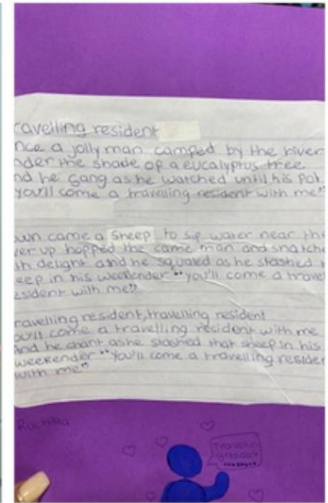 ravelling resident
nce a jolly man camped by the river
nder the shade of a eucalyptus tree
nd he gang as he watched until his pot
you'll come a travelling resident with me"
own came a sheep to sip water near the
ver up hopped the came man and snatche
th delight and he squaled as he stashed t
eep in his weekender "you'll come a trave
esident with me"
ravelling resident, travelling resident
ou'll come a travelling resident with me
And he chant as he stashed that sheep in his
weekender "You'll come a travelling resider
with me"